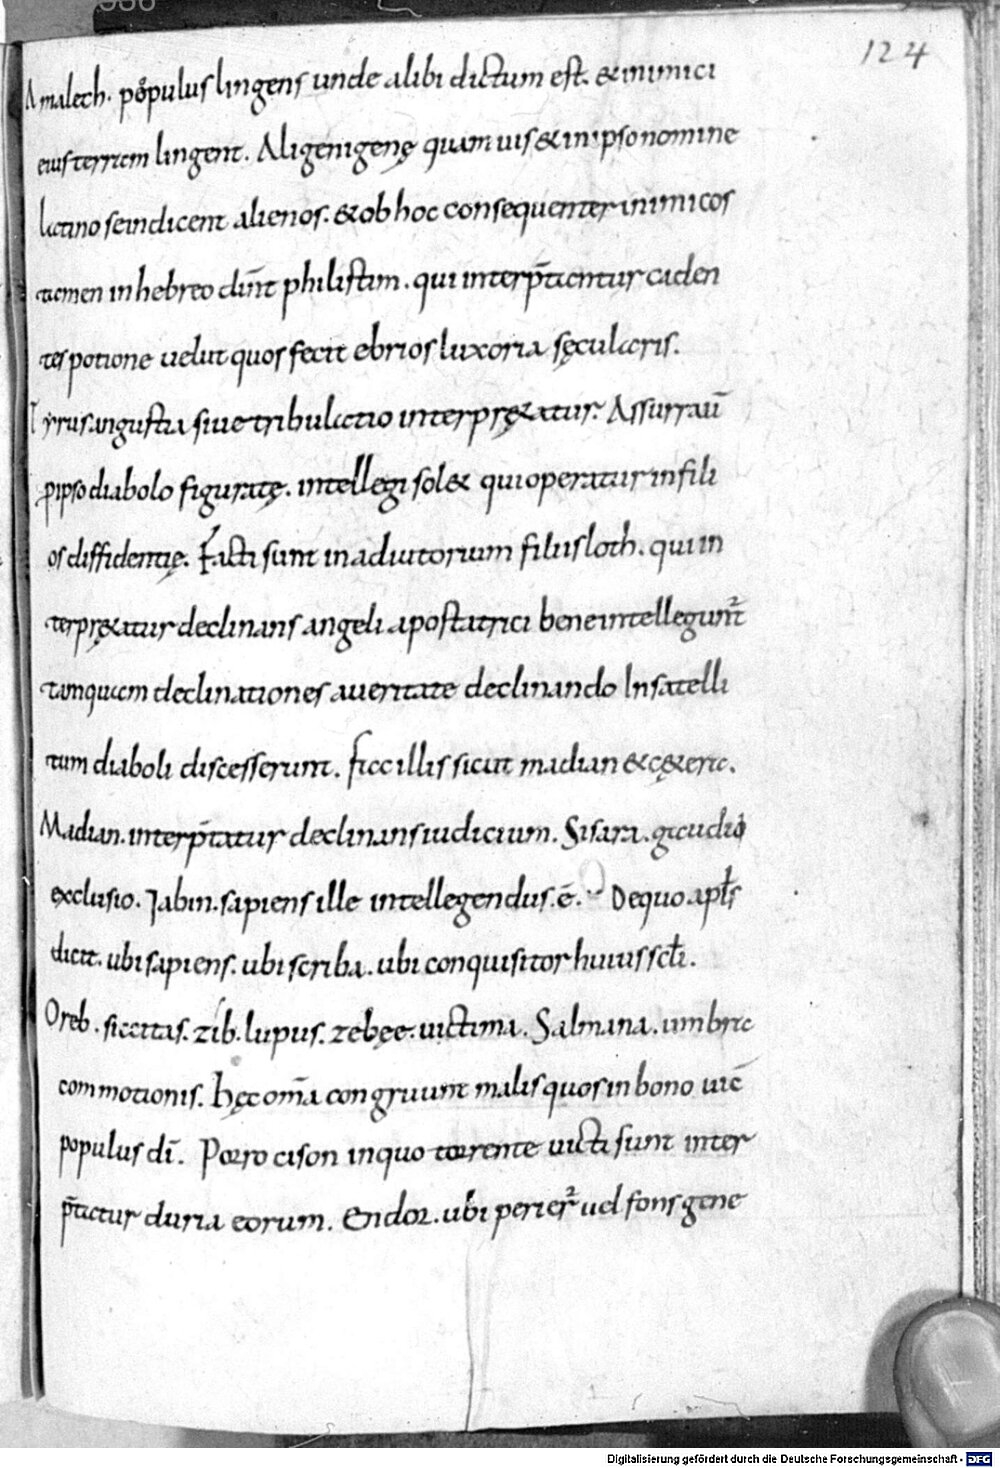 124
Amalech. populus lingens unde alibi dictum est. & inimici
eius terram lingent. Aligenigenę quamuis & in ipso nomine
latino se indicent alienos. & ob hoc consequenter inimicos
tamen in hebreo dn̄t philistim. qui interp̄tantur caden
tes potione uelut quos fecit ebrios luxoria sęcularis.
Tyrus angustia siue tribulatio interpręt&atur. Assur iaū
p ipso diabolo figuratę. intellegi sol& qui operatur in fili
os diffidentię. Facti sunt in adiutorium filiis loth. qui in
terpręt&atur declinans angeli apostatrici bene intellegunt̄
tamquam declinationes a ueritate declinando In satelli
tum diaboli discesserunt. fac illis sicut madian & cęt&era.
Madian. interp̄tatur declinans iudicium. Sisara. gaudio
exclusio. Jabin. sapiens ille intellegendus. ē. De quo apl̄s
dicit. ubi sapiens. ubi scriba. ubi conquisitor huius scl̄i.
Oreb. siccitas. zib. lupus. zebęe. uictima. Salmana. umbra
commotionis. hęc om̄a congruunt malis quos in bono uic̄
populus dī. Porro cison in quo torrente uicti sunt inter
p̄tatur duria eorum. Endor. ubi perier̄ uel fons gene
Digitalisierung gefördert durch die Deutsche Forschungsgemeinschaft - DFG